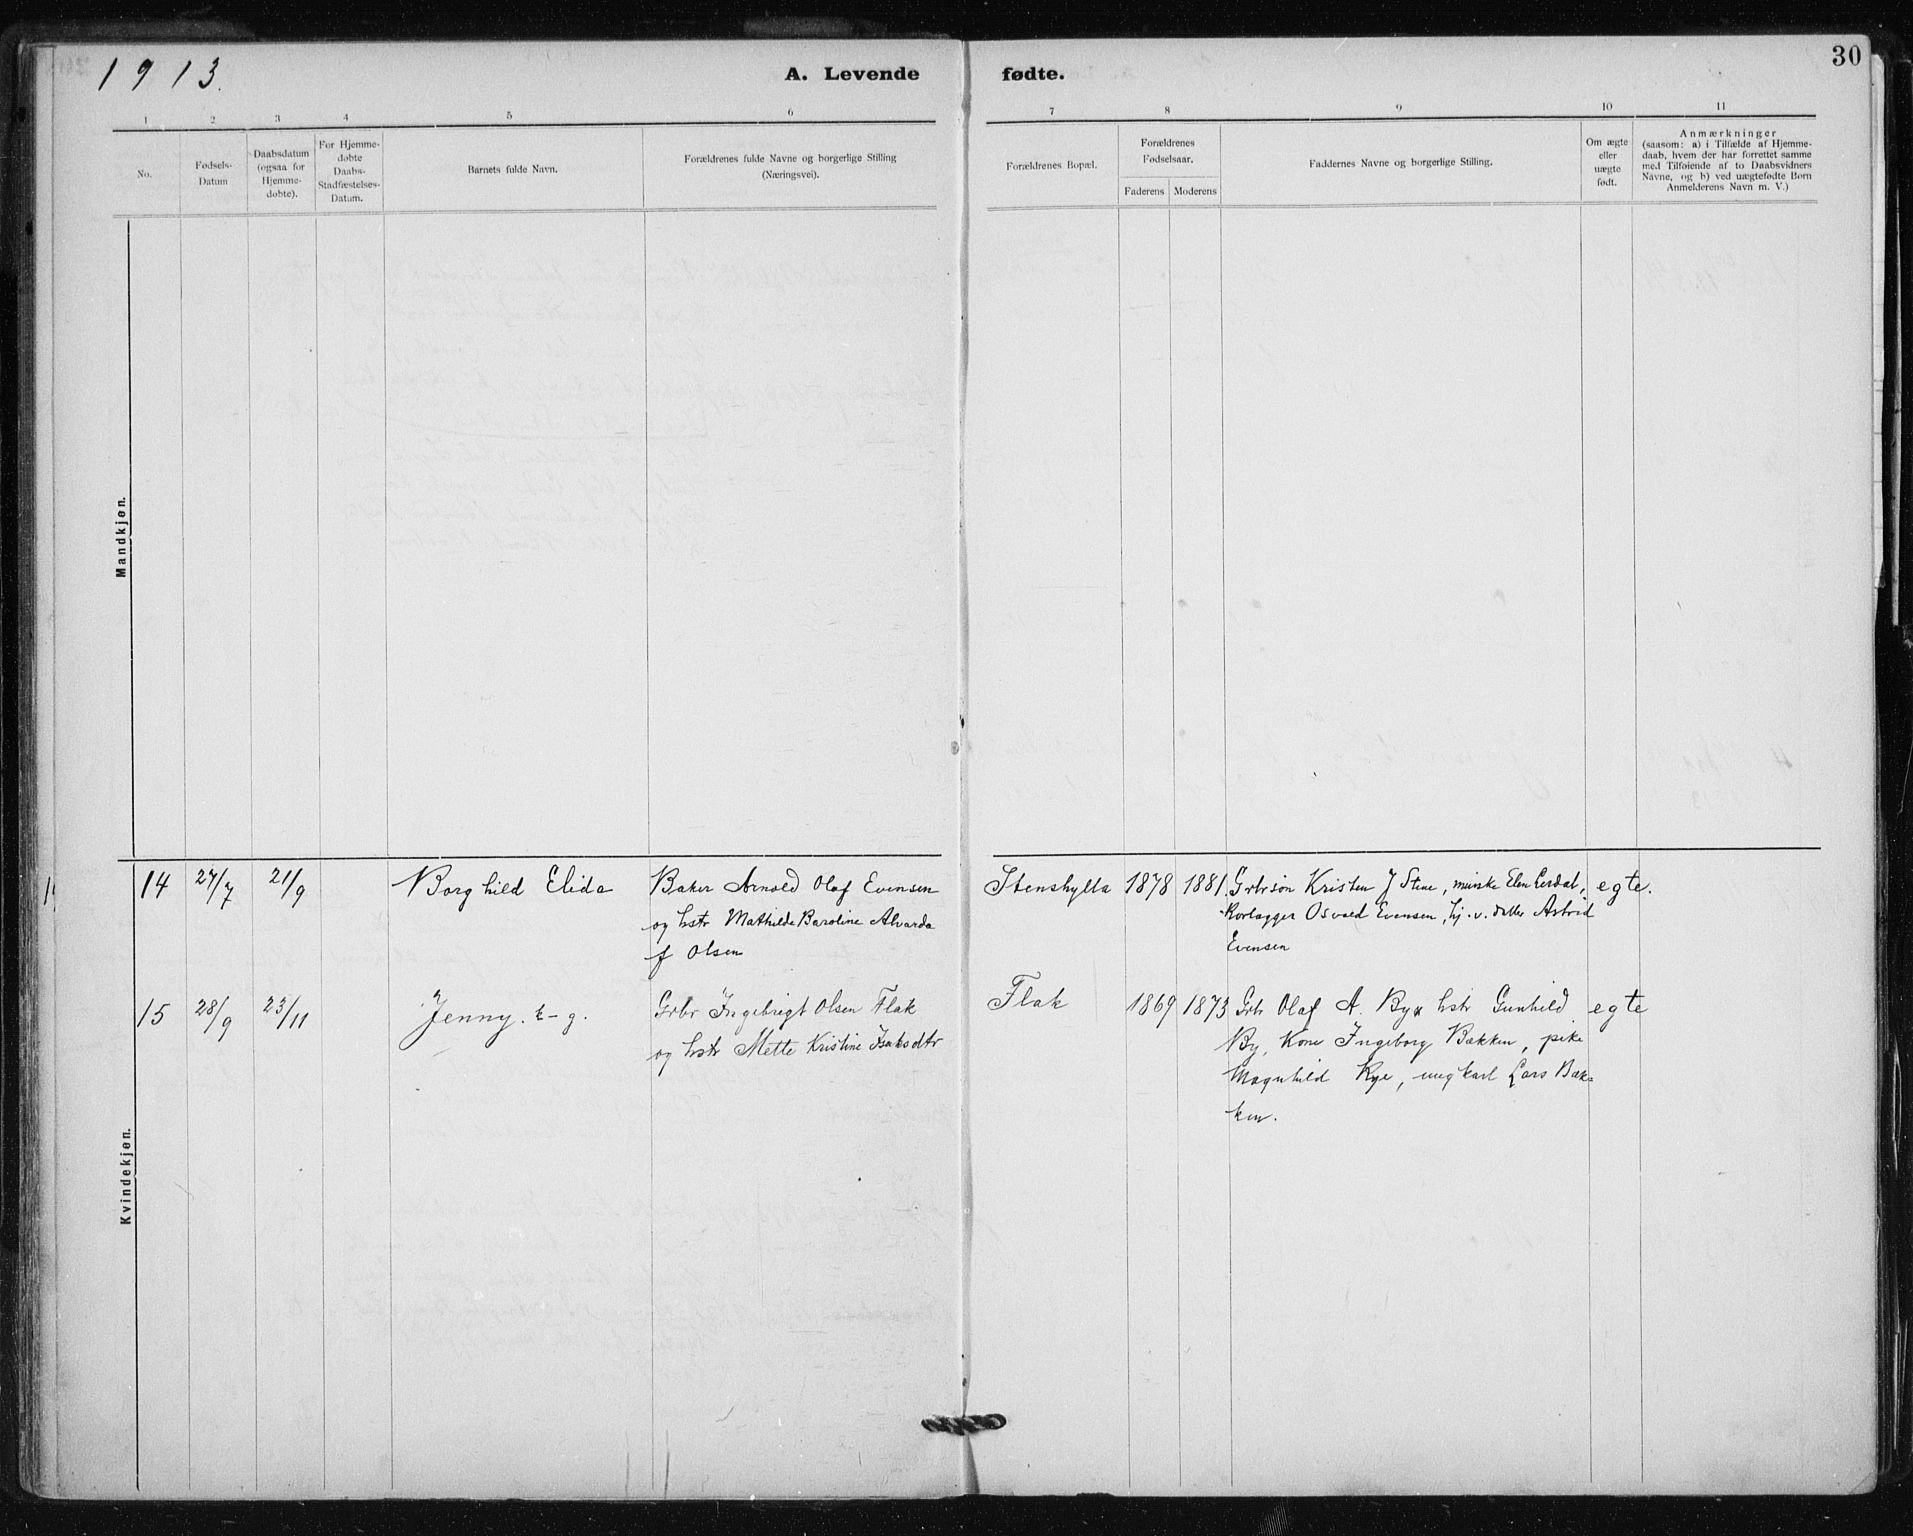 1913.
A. Levende fødte.
30
1 2 3 4 5 6 7 8 9 10 11
No.
Fødsels-
Datum
Daabsdatum
(ogsaa for
Hjemme-
døbte).
For Hjemme-
døbte
Daabs-
Stadfæstelses-
Datum.
Barnets fulde Navn.
Forældrenes fulde Navne og borgerlige Stilling
(Næringsvei).
Forældrenes Bopæl.
Forældrenes
Fødselsaar.
Faderens Moderens
Faddernes Navne og borgerlige Stilling.
Om ægte
eller
uægte
født.
Anmærkninger
(saasom: a) i Tilfælde af Hjemme-
daab, hvem der har forrettet samme
med Tilføiende af to Daabsvidners
Navne, og b) ved uægtefødte Børn
Anmelderens Navn m. V.)
Mandkjøn.
Kvindekjøn.
14 27/7 21/9 Borghild Elida
Baker Arnold Olaf Evensen
og hstr Mathilde Baroline Alvarda
f Olsen
Stenshylla 1878 1881
Grbrsøn Kristen J Stene, Elen
Osvald Evensen, hj. v. datter Astrid
Evensen
egte.
15 28/9 23/11 Jenny. k-g.
Grbr Ingebrigt Olsen Flak
og hstr Mette Kristine Isaksdtr
Flak 1869 1873
Grbr Olaf A. By, hstr Gunhild
By, Kone Ingeborg Bakken, pike
Magnhild Rye, ungkarl Lars Bak-
ken.
egte